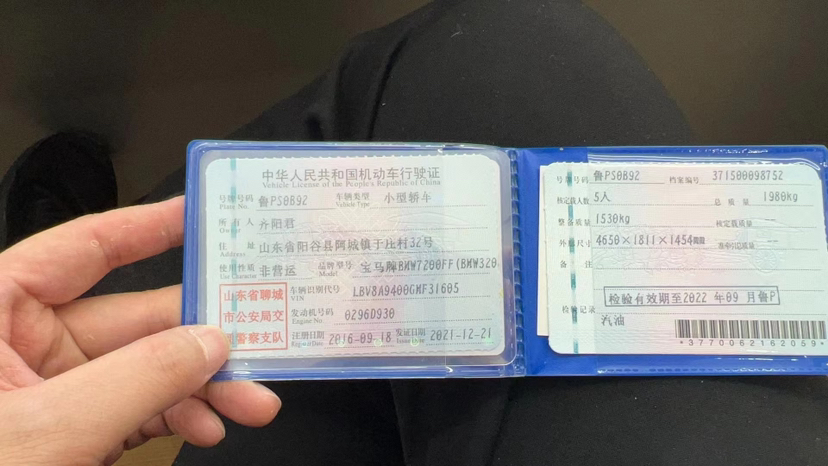 中华人民共和国机动车行驶证
Vehicle License of the People's Republic of China
号牌号码 鲁PS0B92 车辆类型 小型轿车
Plate No. Vehicle Type
所有人 齐阳君
Owner
住址 山东省阳谷县阿城镇于庄村32号
Address
使用性质 非营运 品牌型号 宝马牌BMW7200FF(BMW320
Use Character Model
山东省聊城
市公安局交
警察支队
车辆识别代号 LBV8A9400GMF31605
VIN
发动机号码 0296D930
Engine No.
注册日期 2016-09-18 发证日期 2021-12-21
Register Date Issue Date
号牌号码 鲁PS0B92 档案编号 371500098752
核定载人数 5人 总质量 1980kg
整备质量 1530kg 核定载质量
外廓尺寸 4650×1811×1454mm 准牵引总质量
备注
检验记录 检验有效期至2022年09月鲁P
汽油
*3770062162059*